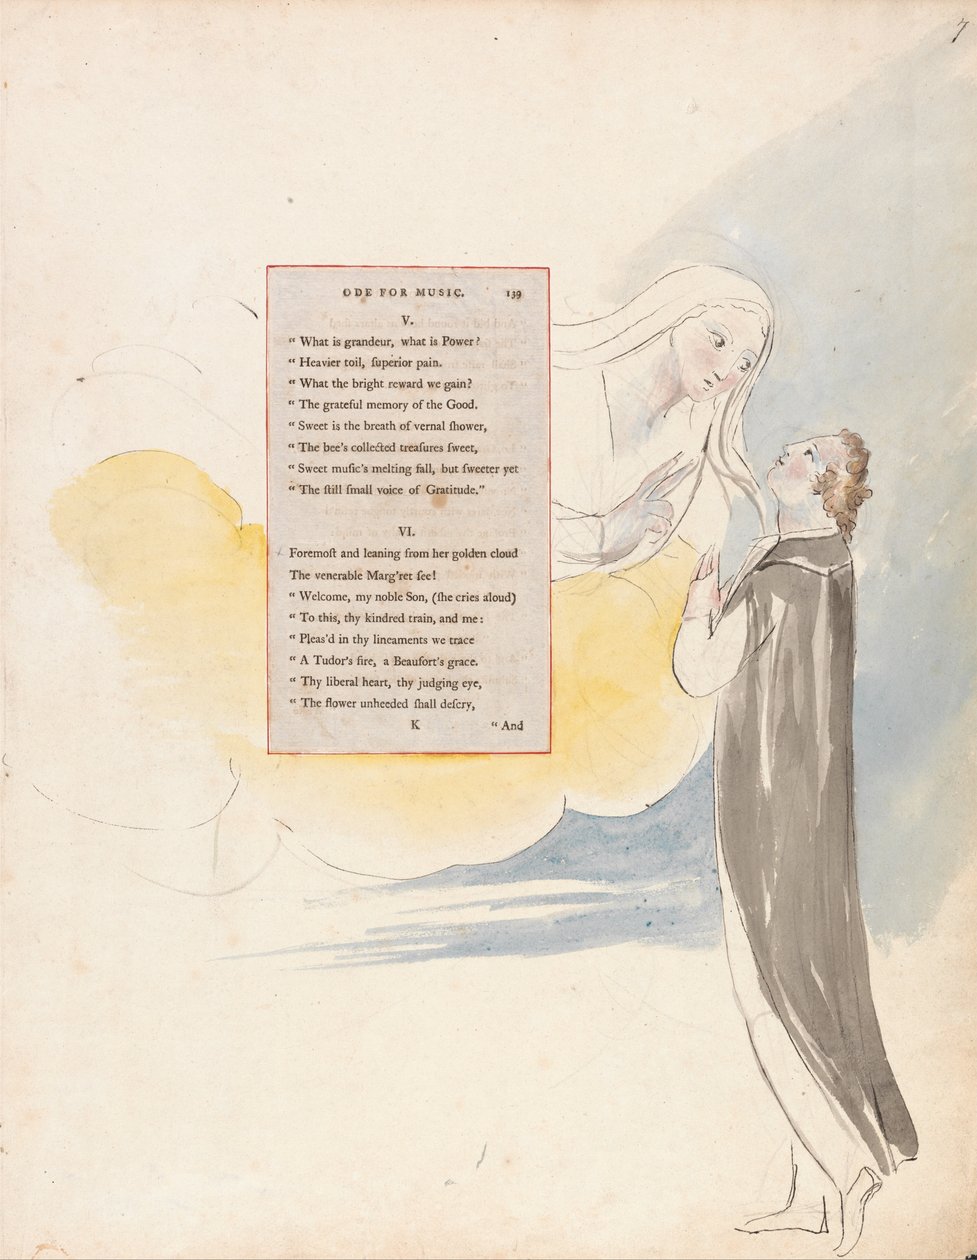 7
ODE FOR MUSIC. 139
V.
“ What is grandeur, what is Power?
“ Heavier toil, ſuperior pain.
“ What the bright reward we gain?
“ The grateful memory of the Good.
“ Sweet is the breath of vernal ſhower,
“ The bee's collected treaſures ſweet,
“ Sweet muſic's melting fall, but ſweeter yet
“ The ſtill ſmall voice of Gratitude.”
VI.
Foremoſt and leaning from her golden cloud
The venerable Marg'ret ſee!
“ Welcome, my noble Son, (ſhe cries aloud)
“ To this, thy kindred train, and me:
“ Pleas'd in thy lineaments we trace
“ A Tudor's fire, a Beaufort's grace.
“ Thy liberal heart, thy judging eye,
“ The flower unheeded ſhall deſcry,
K “ And